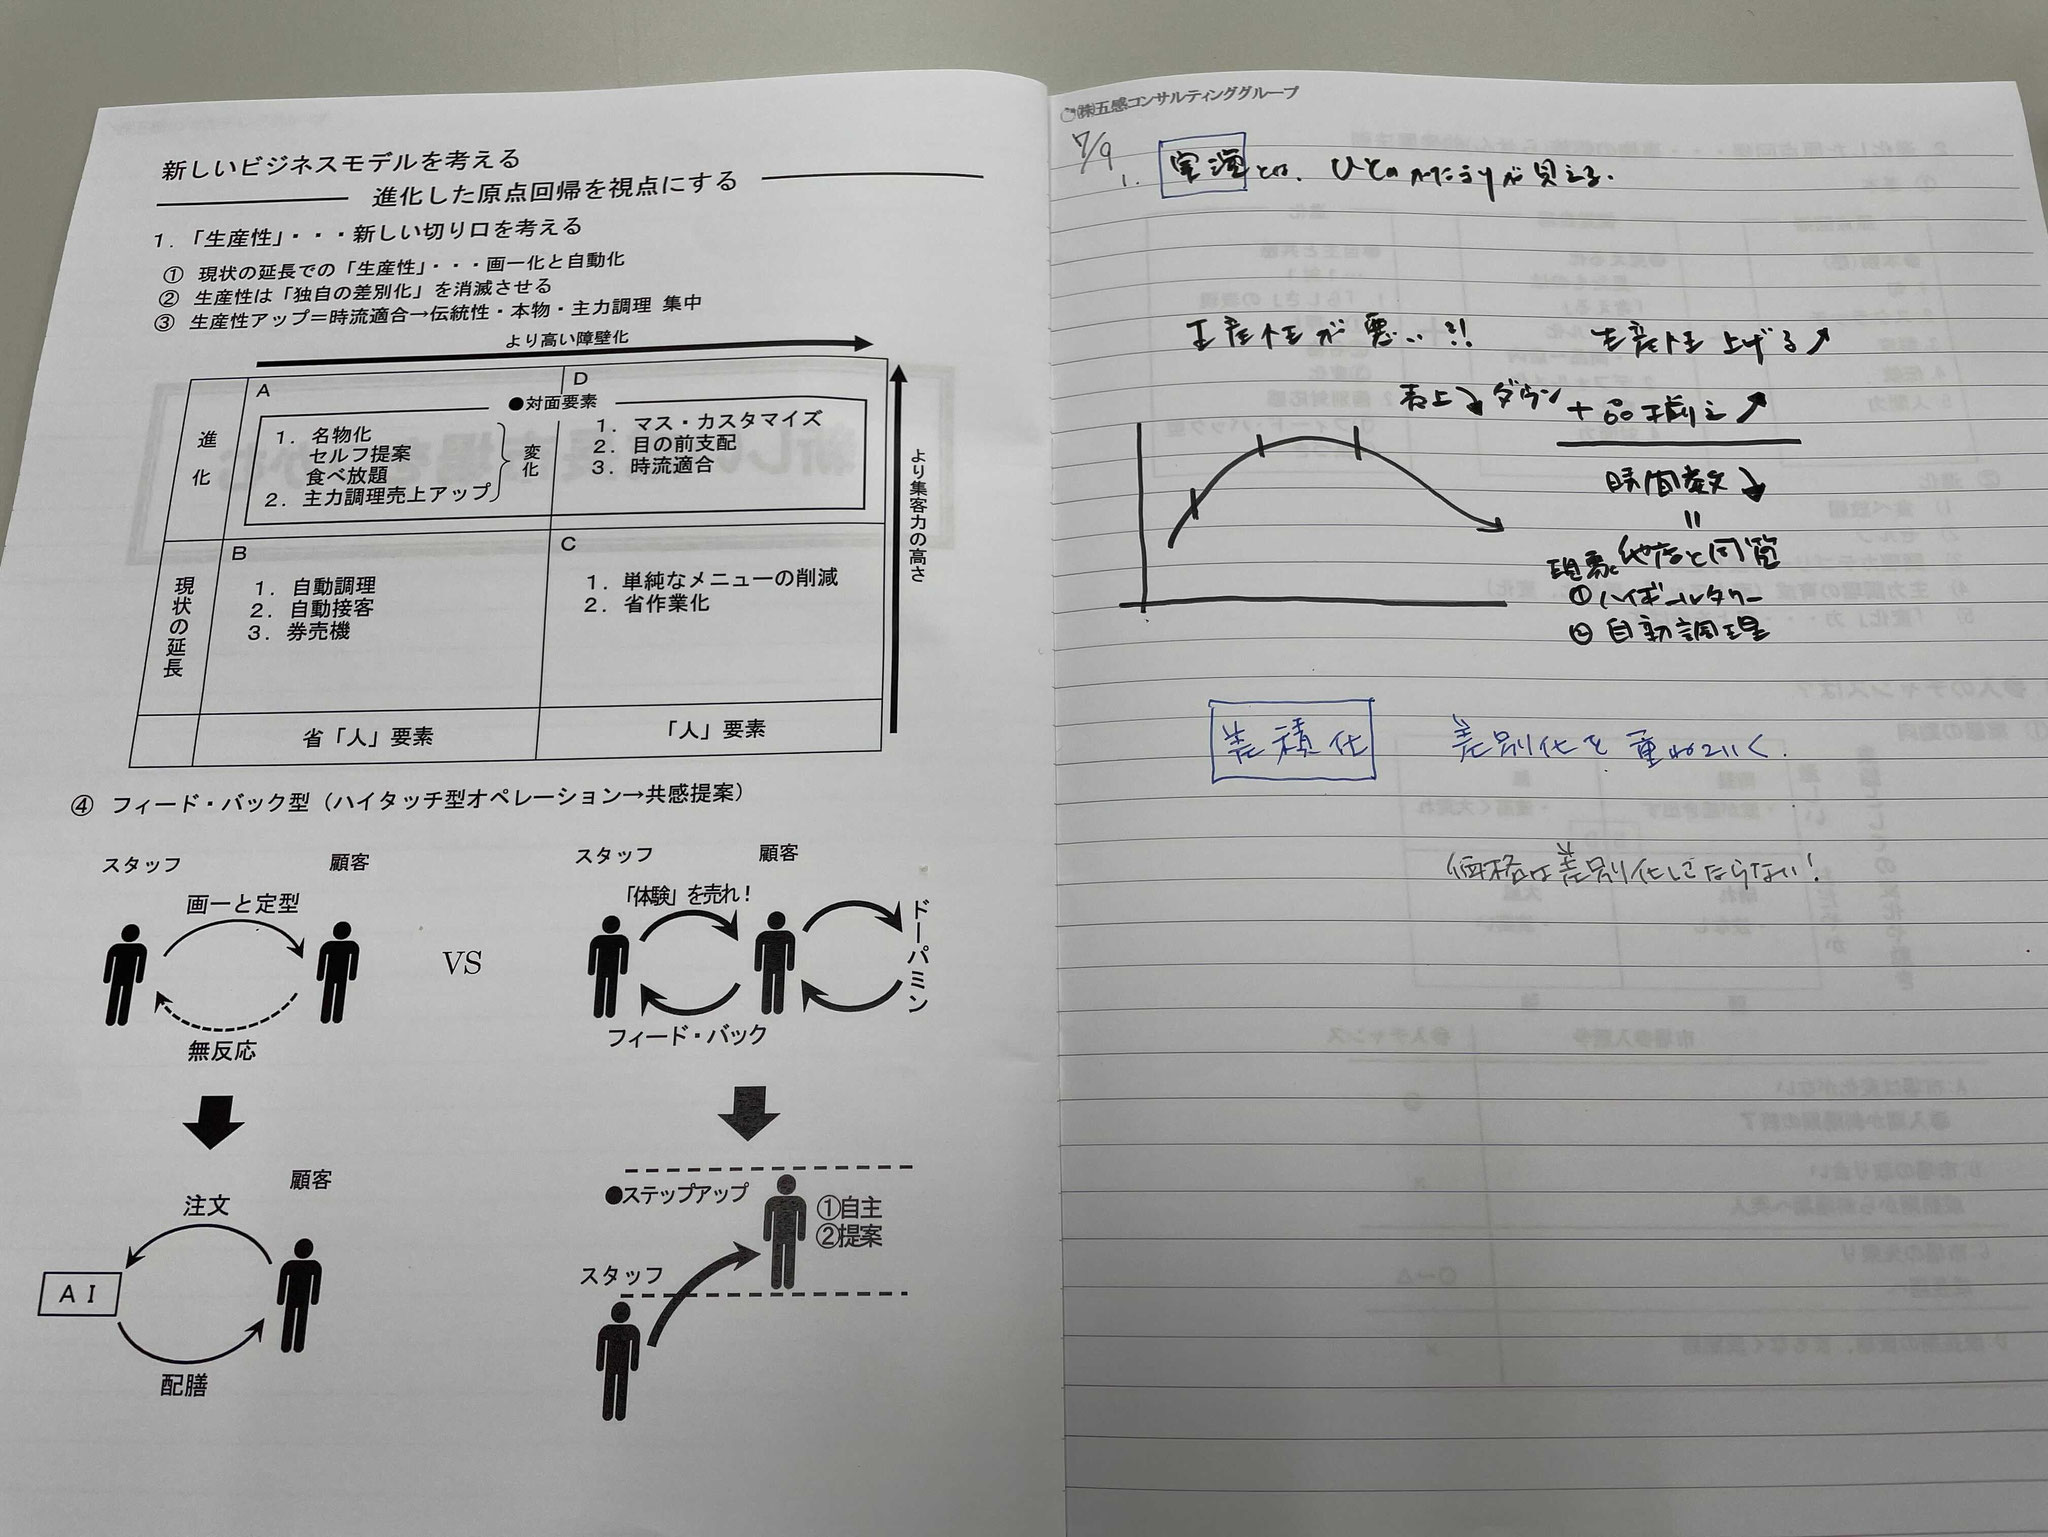 新しいビジネスモデルを考える
進化した原点回帰を視点にする
1.「生産性」・・・新しい切り口を考える
① 現状の延長での「生産性」・・・画一化と自動化
② 生産性は「独自の差別化」を消滅させる
③ 生産性アップ=時流適合→伝統性・本物・主力調理 集中
より高い障壁化
A
D
●対面要素
進化
1. 名物化
セルフ提案
食べ放題
2. 主力調理売上アップ
変化
1. マス・カスタマイズ
2. 目の前支配
3. 時流適合
より集客力の高さ
現状の延長
B
1. 自動調理
2. 自動接客
3. 券売機
C
1. 単純なメニューの削減
2. 省作業化
省「人」要素
「人」要素
④ フィード・バック型(ハイタッチ型オペレーション→共感提案)
スタッフ
顧客
画一と定型
無反応
VS
スタッフ
顧客
「体験」を売れ!
フィード・バック
ドーパミン
注文
顧客
AI
配膳
●ステップアップ
①自主
②提案
スタッフ
㈱五感コンサルティンググループ
7/9
1. 実演とは、ひとの が見える.
生産性が悪い?!
生産性上げる↗
売上↘ダウン
+品揃え↗
時間数↘
=
現象 他店と同質
① ハイボールタワー
② 自動調理
差積化
差別化を重ねていく.
価格は差別化してならない!